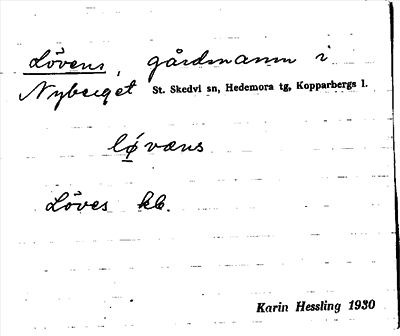 Lövens, gårdnamn i
Nyberget St. Skedvi sn, Hedemora tg, Kopparbergs l.
lǿvæns
Löves kb.
Karin Hessling 1930